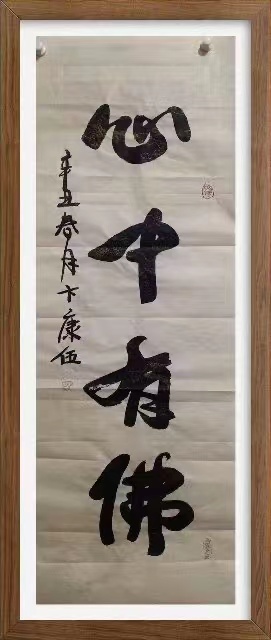 心中有佛
辛丑春月卞康伍